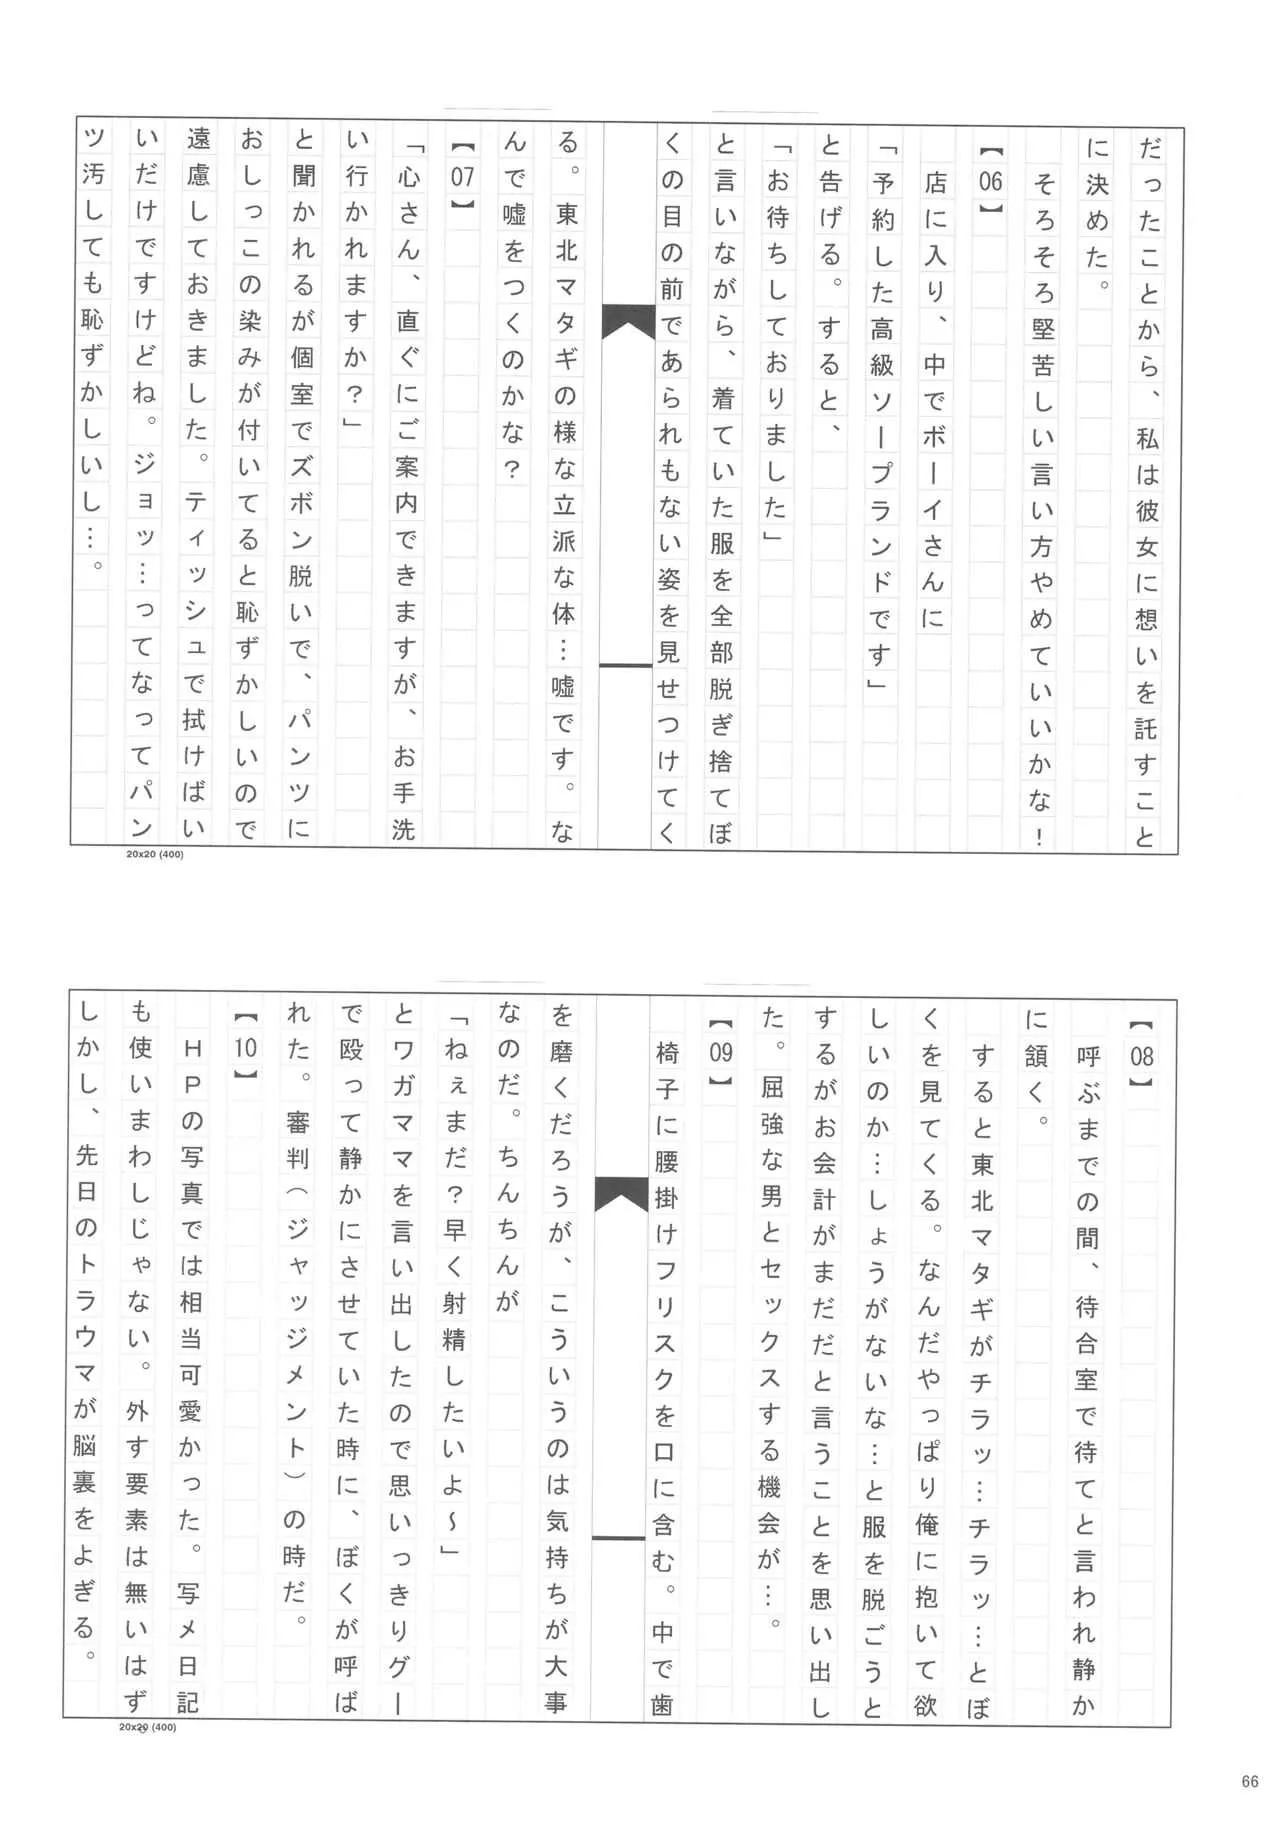 だったことから、私は彼女に想いを託すこと
に決めた。
そろそろ堅苦しい言い方やめていいかな！
【06】
店に入り、中でボーイさんに
「予約した高級ソープランドです」
と告げる。すると、
「お待ちしておりました」
と言いながら、着ていた服を全部脱ぎ捨てぼ
くの目の前であられもない姿を見せつけてく
る。東北マタギの様な立派な体…嘘です。な
んで嘘をつくのかな？
【07】
「心さん、直ぐにご案内できますが、お手洗
い行かれますか？」
と聞かれるが個室でズボン脱いで、パンツに
おしっこの染みが付いてると恥ずかしいので
遠慮しておきました。ティッシュで拭けばい
いだけですけどね。ジョッ…ってなってパン
ツ汚しても恥ずかしいし…。
20x20 (400)
【08】
呼ぶまでの間、待合室で待てと言われ静か
に頷く。
すると東北マタギがチラッ…チラッ…とぼ
くを見てくる。なんだやっぱり俺に抱いて欲
しいのか…しょうがないな…と服を脱ごうと
するがお会計がまだだと言うことを思い出し
た。屈強な男とセックスする機会が…。
【09】
椅子に腰掛けフリスクを口に含む。中で歯
を磨くだろうが、こういうのは気持ちが大事
なのだ。ちんちんが
「ねぇまだ？早く射精したいよ～」
とワガママを言い出したので思いっきりグー
で殴って静かにさせていた時に、ぼくが呼ば
れた。審判（ジャッジメント）の時だ。
【10】
ＨＰの写真では相当可愛かった。写メ日記
も使いまわしじゃない。外す要素は無いはず
しかし、先日のトラウマが脳裏をよぎる。
20x20 (400)
66